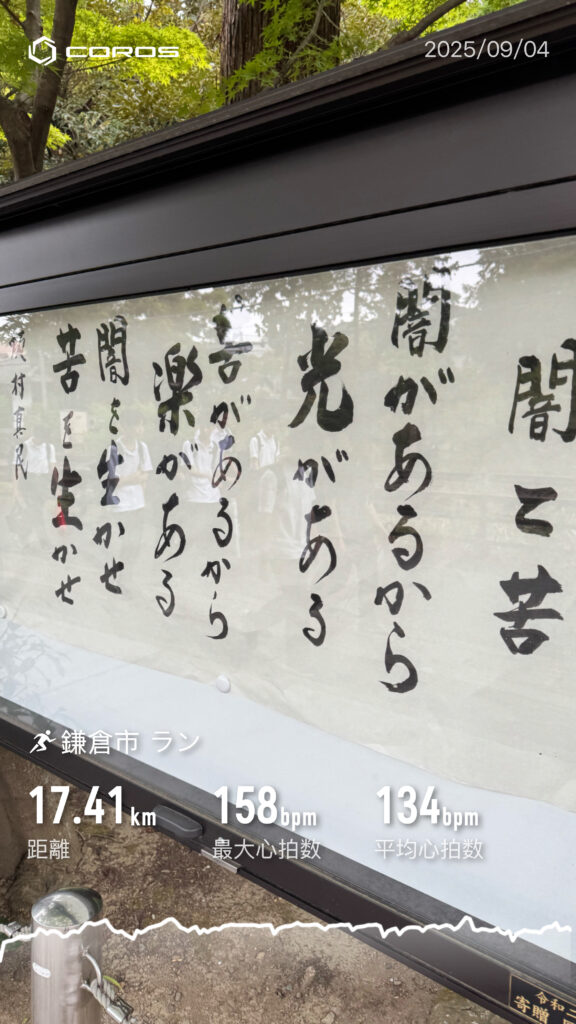 COROS
2025/09/04
闇と苦
闇があるから
光がある
苦があるから
楽がある
闇を生かせ
苦を生かせ
村真民
鎌倉市 ラン
17.41km
158bpm
134bpm
距離
最大心拍数
平均心拍数
令和
寄贈